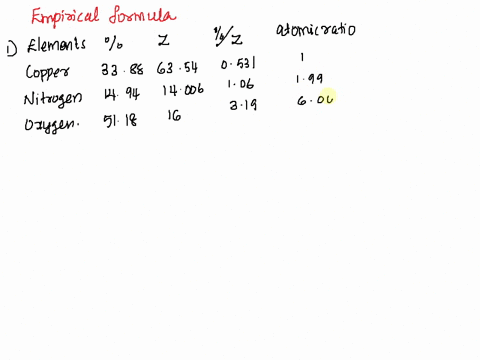 Empirical formula
1) Elements % Z %/Z atomic ratio
Copper 33.88 63.54 0.531 1
Nitrogen 14.94 14.006 1.06 1.99
Oxygen. 51.18 16 3.19 6.00